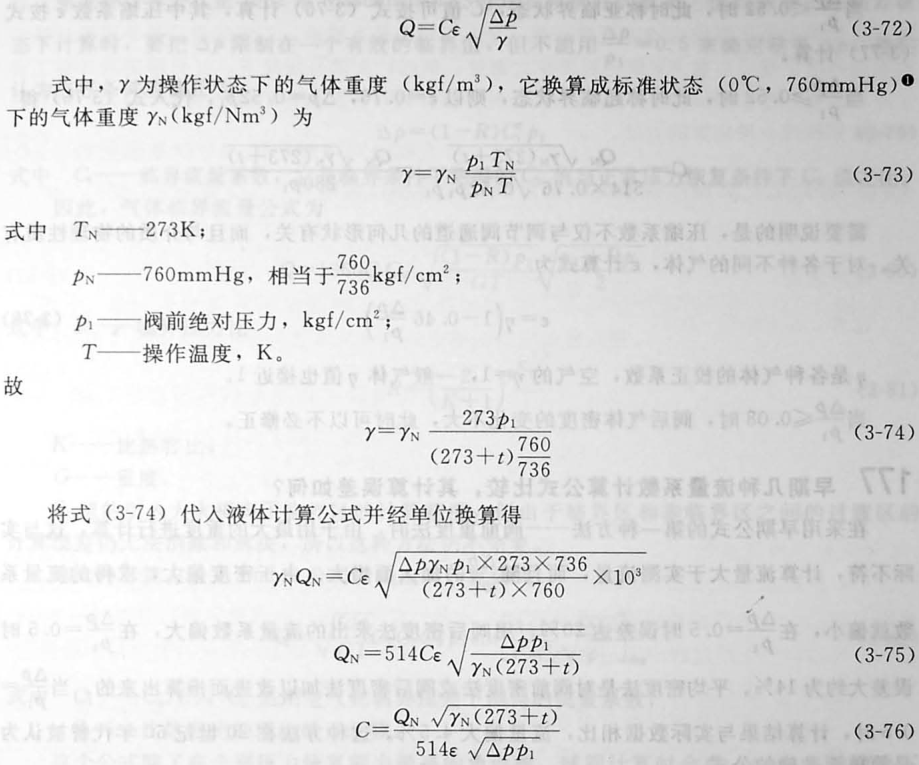 Q=Cε√(Δp/γ) (3-72)
式中，γ为操作状态下的气体重度（kgf/m³），它换算成标准状态（0℃，760mmHg）❶
下的气体重度 γN(kgf/Nm³）为
γ=γN (p₁TN)/(pNT) (3-73)
式中 TN——273K；
pN——760mmHg，相当于760/736 kgf/cm²；
p₁——阀前绝对压力，kgf/cm²；
T——操作温度，K。
故
γ=γN 273p₁/((273+t)760/736) (3-74)
将式（3-74）代入液体计算公式并经单位换算得
γNQN=Cε√((ΔpγNp₁×273×736)/((273+t)×760)×10³)
QN=514Cε√(Δpp₁/(γN(273+t))) (3-75)
C=(QN√(γN(273+t)))/(514ε√(Δpp₁)) (3-76)